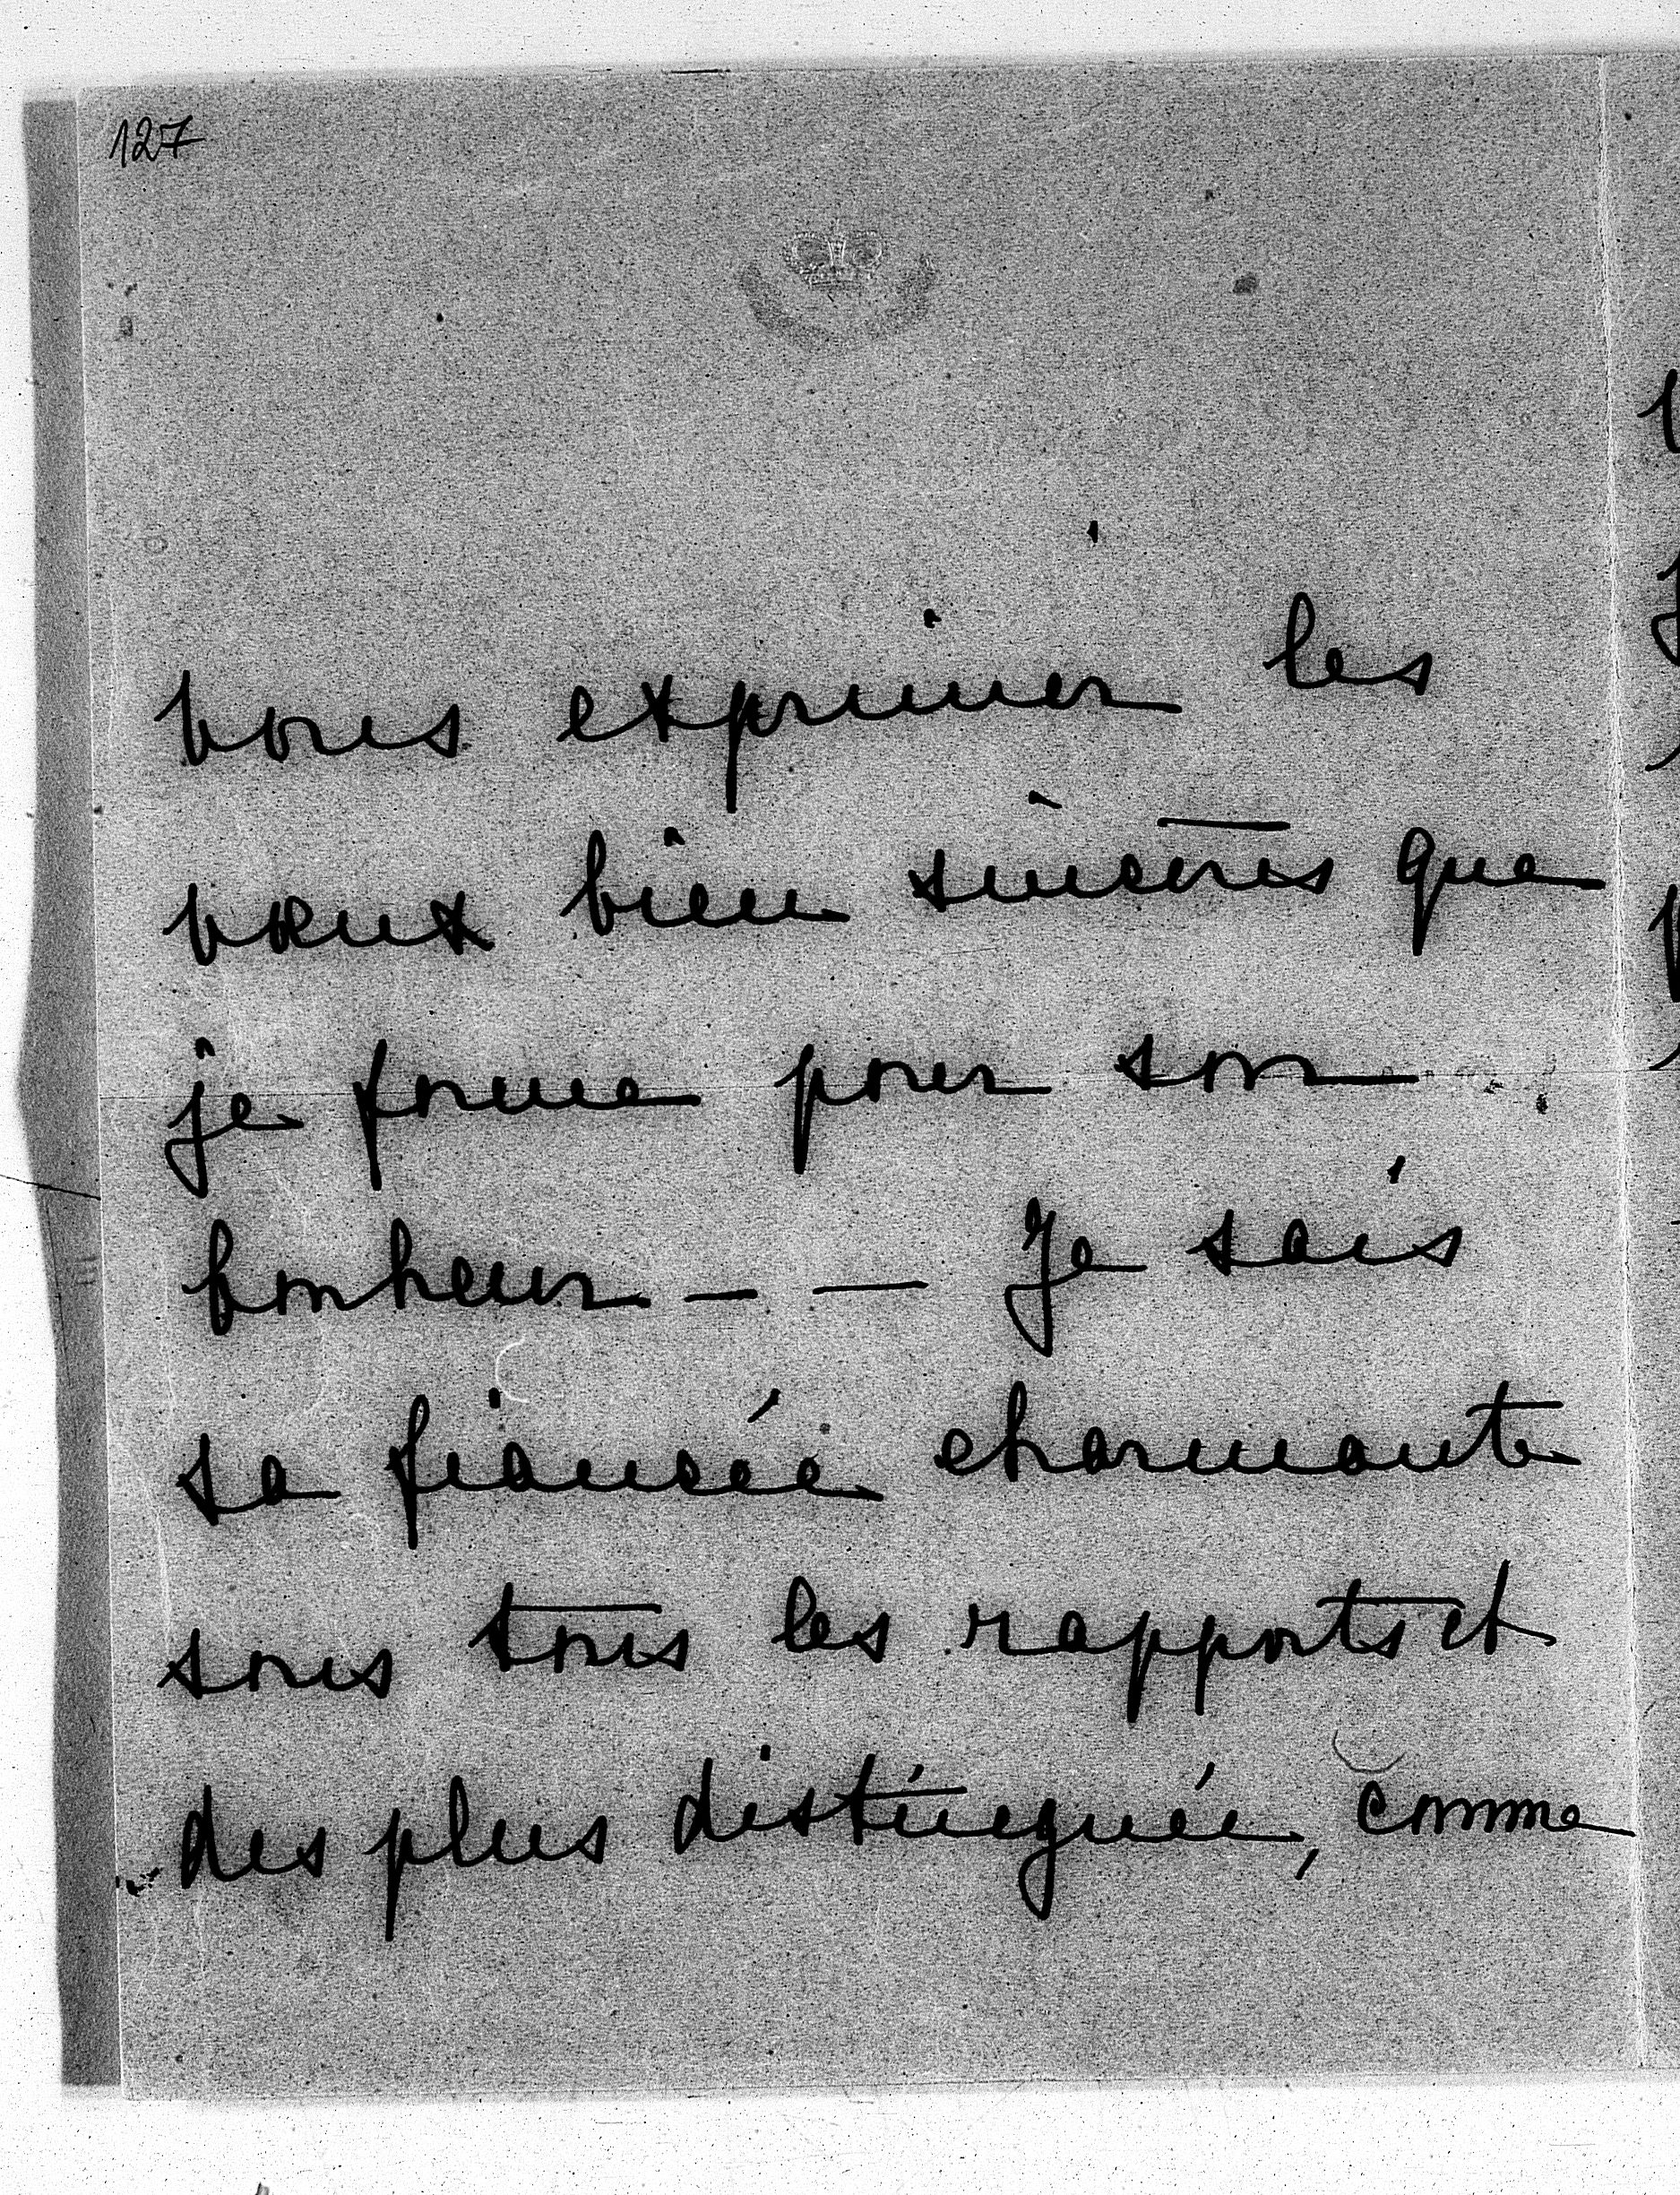 127
vous exprimer les
vœux bien sincères que
je forme pour son
bonheur — — Je sais
sa fiancée charmante
sous tous les rapports et
des plus distinguée, comme